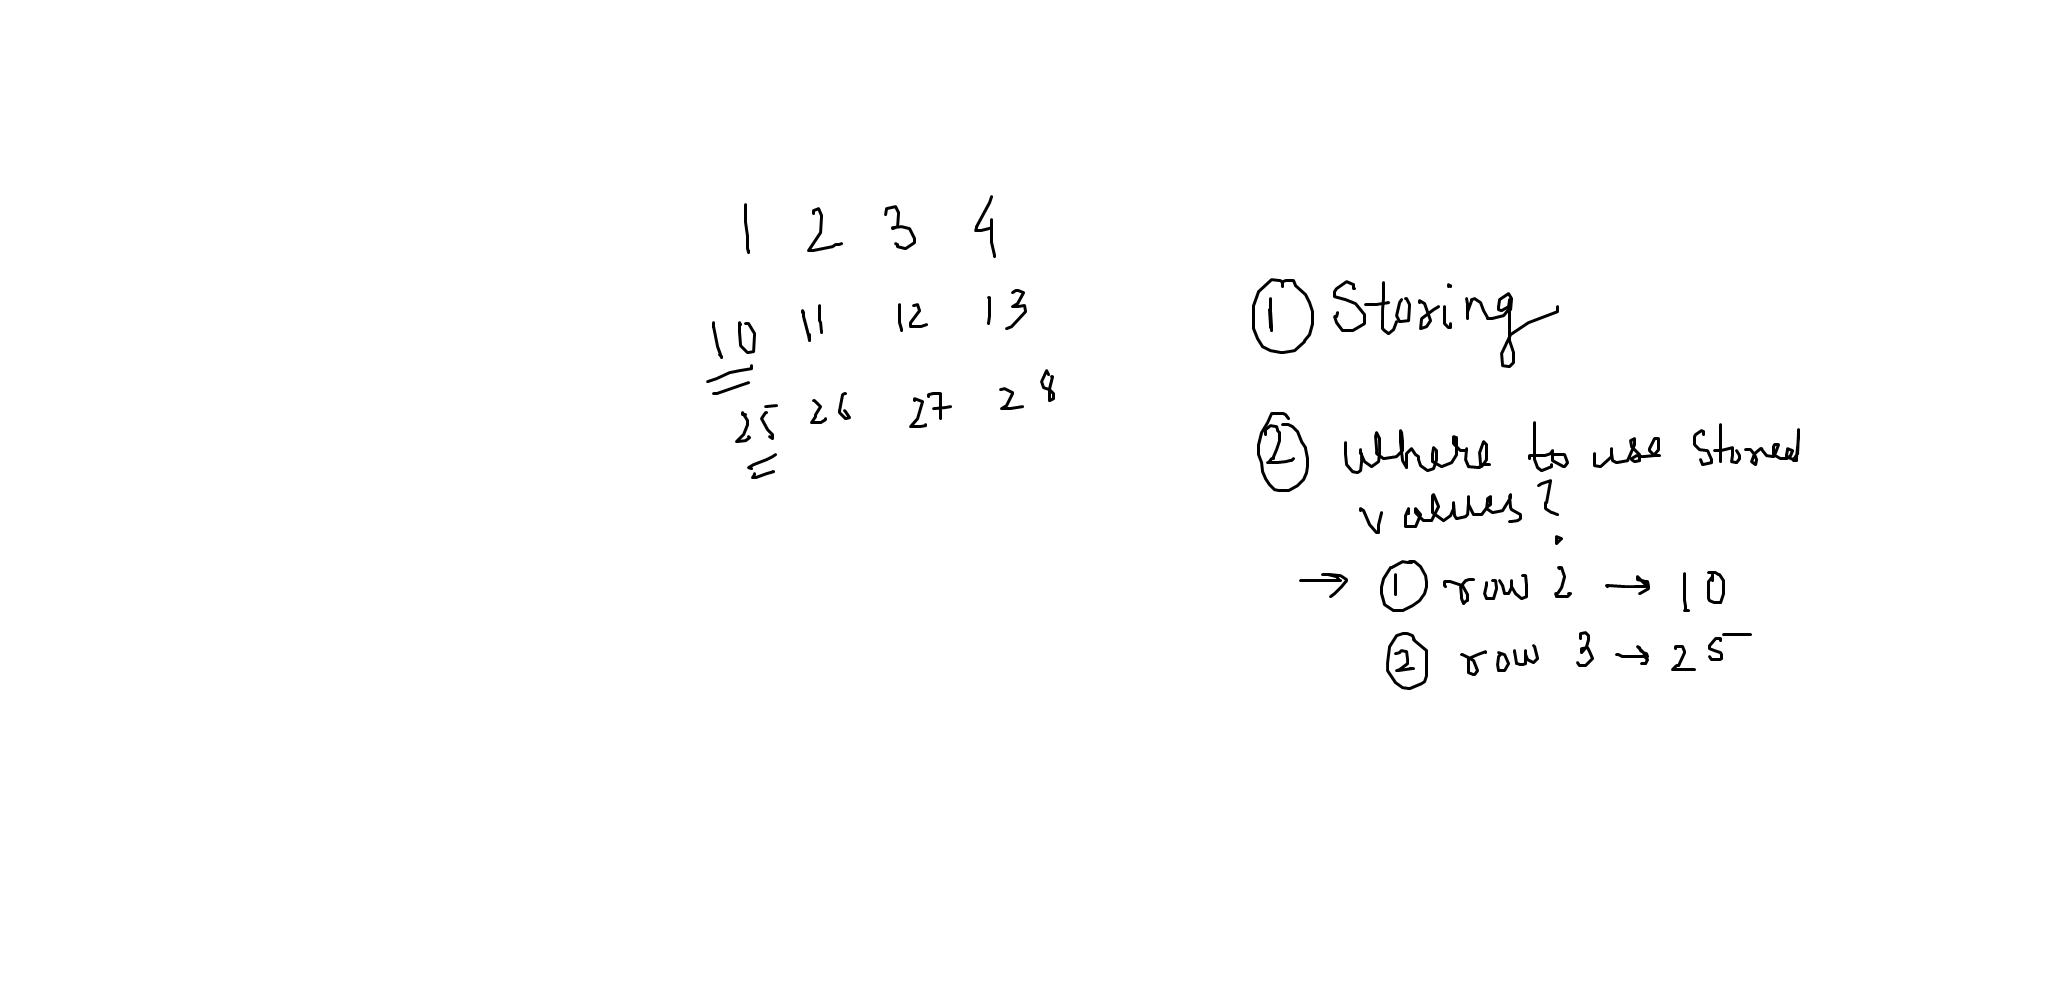 1 2 3 4
10 11 12 13
25 26 27 28
① Storing
② where to use stored
values?
→ ① row 2 → 10
② row 3 → 25